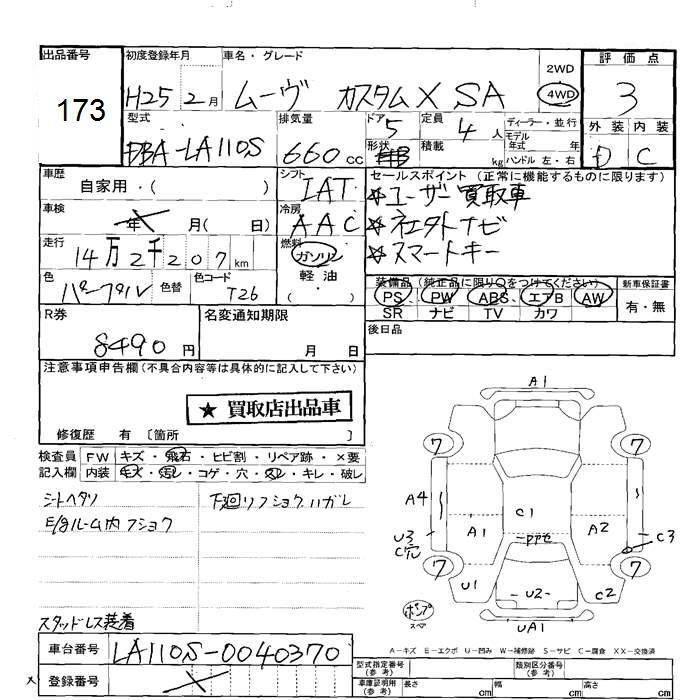 出品番号
173
初度登録年月
H25 2月
車名・グレード
ムーヴ カスタムX SA
2WD
4WD
評価点
3
型式
DBA-LA110S
排気量
660cc
ドア
5
形状
定員
4人
積載
kg
ディーラー・並行
モデル年式 年
ハンドル 左・右
外装 内装
D C
車歴
自家用・( )
シフト
IAT
セールスポイント (正常に機能するものに限ります)
☆ユーザー買取車
☆社外ナビ
☆スマートキー
車検
年 月( 日)
冷房
AAC
走行
14万2千207km
燃料
ガソリン
軽油
( )
色
パープル
色替
色コード
T26
装備品 (純正品に限り○をつけてください)
PS・PW・ABS・エアB・AW
SR ナビ TV カワ
新車保証書
有・無
R券
8490円
名変通知期限
月 日
後日品
注意事項申告欄 (不具合内容等は具体的に記入して下さい)
★ 買取店出品車
修復歴 有 〔箇所 〕
検査員記入欄
FW キズ・飛石・ヒビ割・リペア跡・×要
内装 キズ・汚レ・コゲ・穴・スレ・キレ・破レ
シートヘタリ
下廻リフショク、ハガレ
E/gルーム内フショク
スタッドレス装着
A1
7
7
A4
A1
C1
A2
U3
C穴
C3
7
7
U1
U2
C2
UA1
ポンプ
スペア
A-キズ E-エクボ U-凹み W-補修跡 S-サビ C-腐食 XX-交換済
車台番号
LA110S-0040370
登録番号
型式指定番号(参考)
類別区分番号(参考)
車庫証明用(参考)
長さ cm
幅 cm
高さ cm